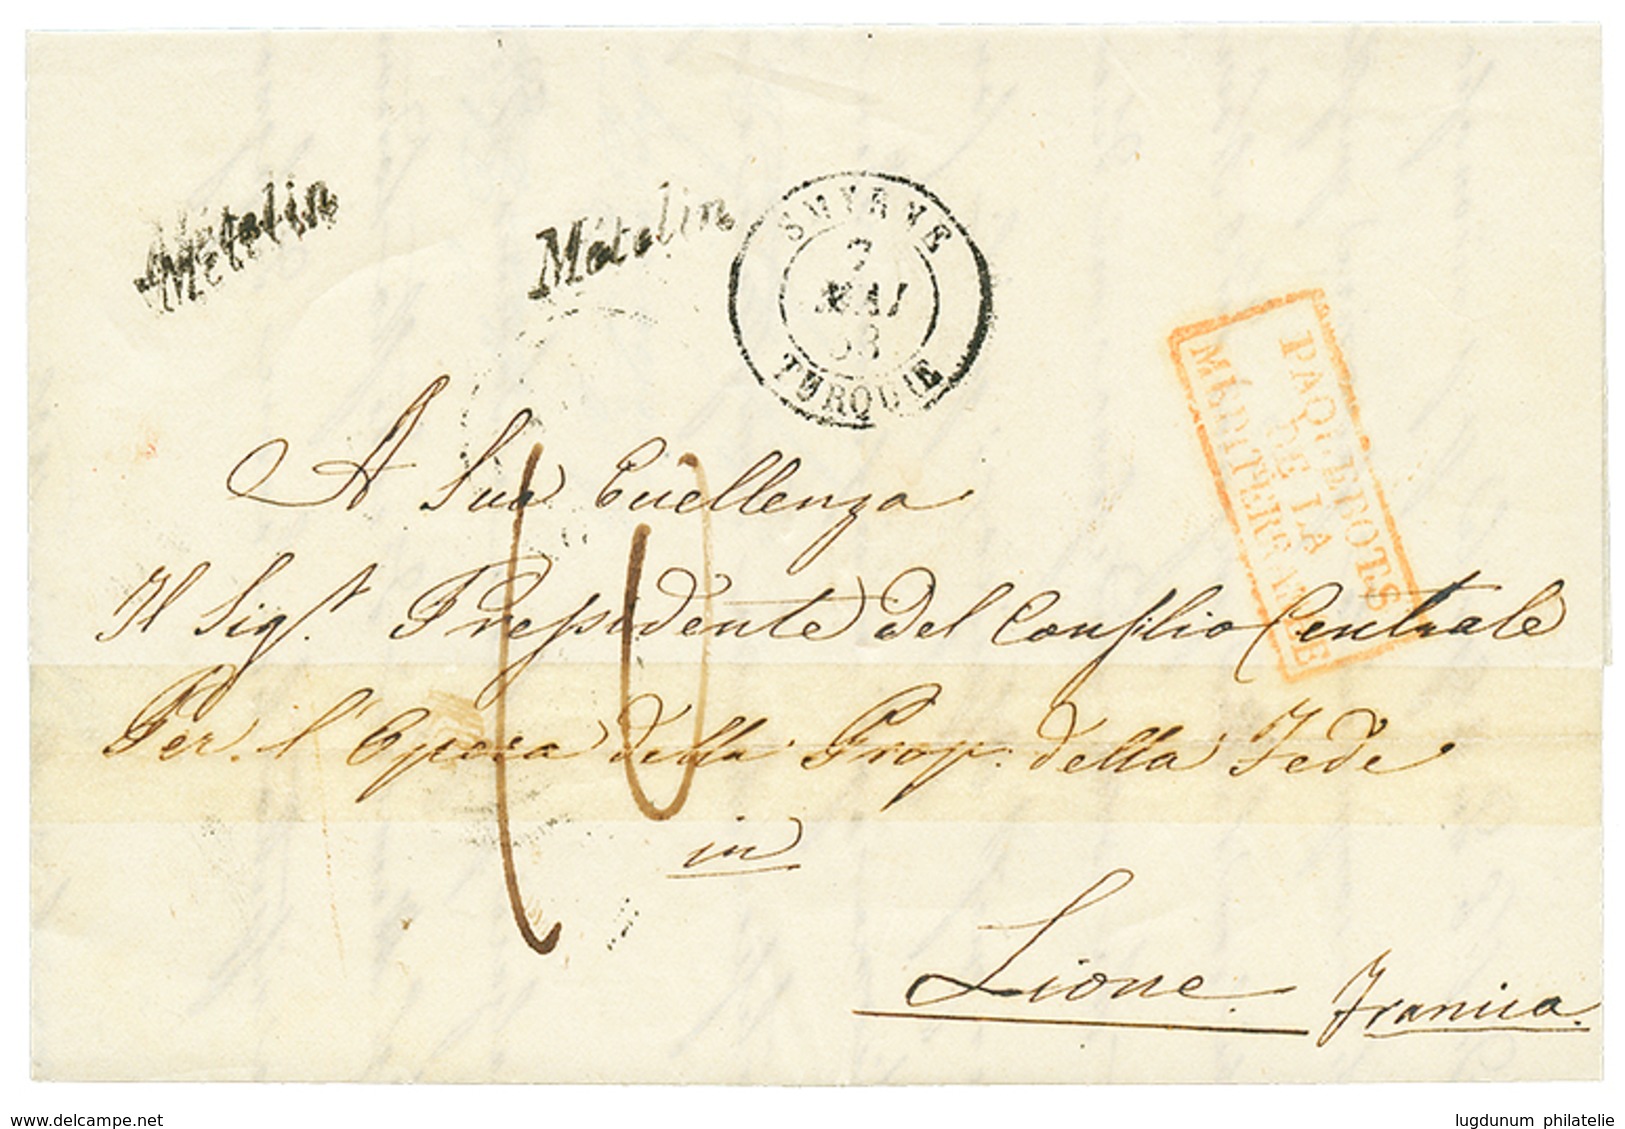 Métélin
Métélin
SMYRNE
7
MAI
53
TURQUIE
PAQUEBOTS
DE LA
MÉDITERRANÉE
10
A Sua Eccellenza
Il Sigr. Presidente del Consilio Centrale
Per. l'Opera della Prop. della Fede
in
Lione. Francia.
www.delcampe.net
lugdunum philatelie